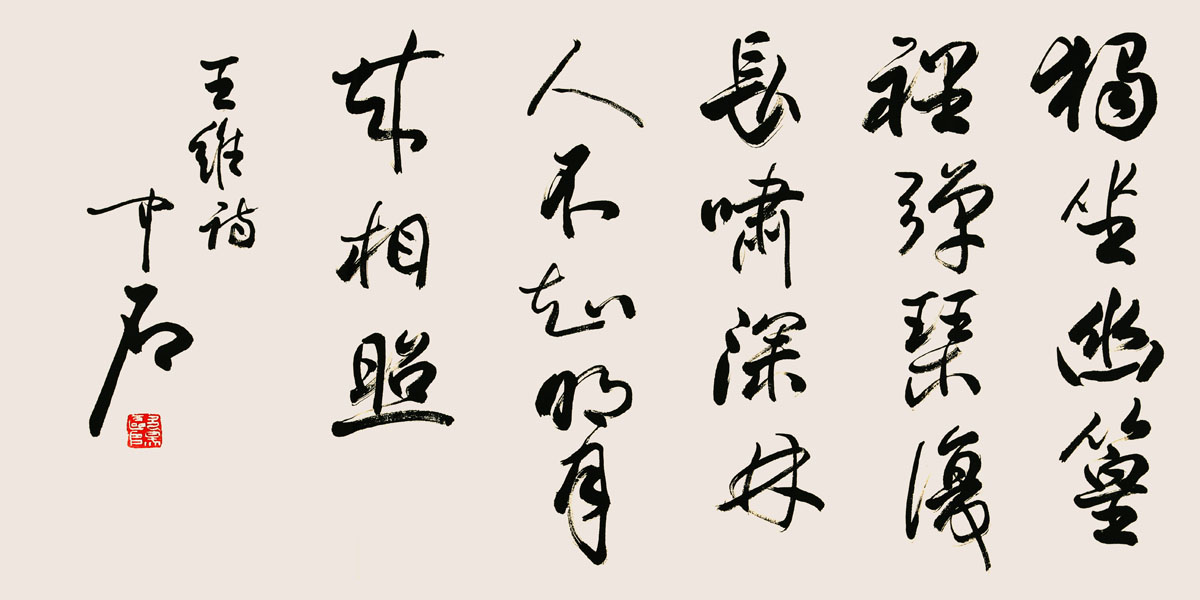 獨坐幽篁
裡彈琴復
長嘯深林
人不知明月
来相照
王維詩
中石